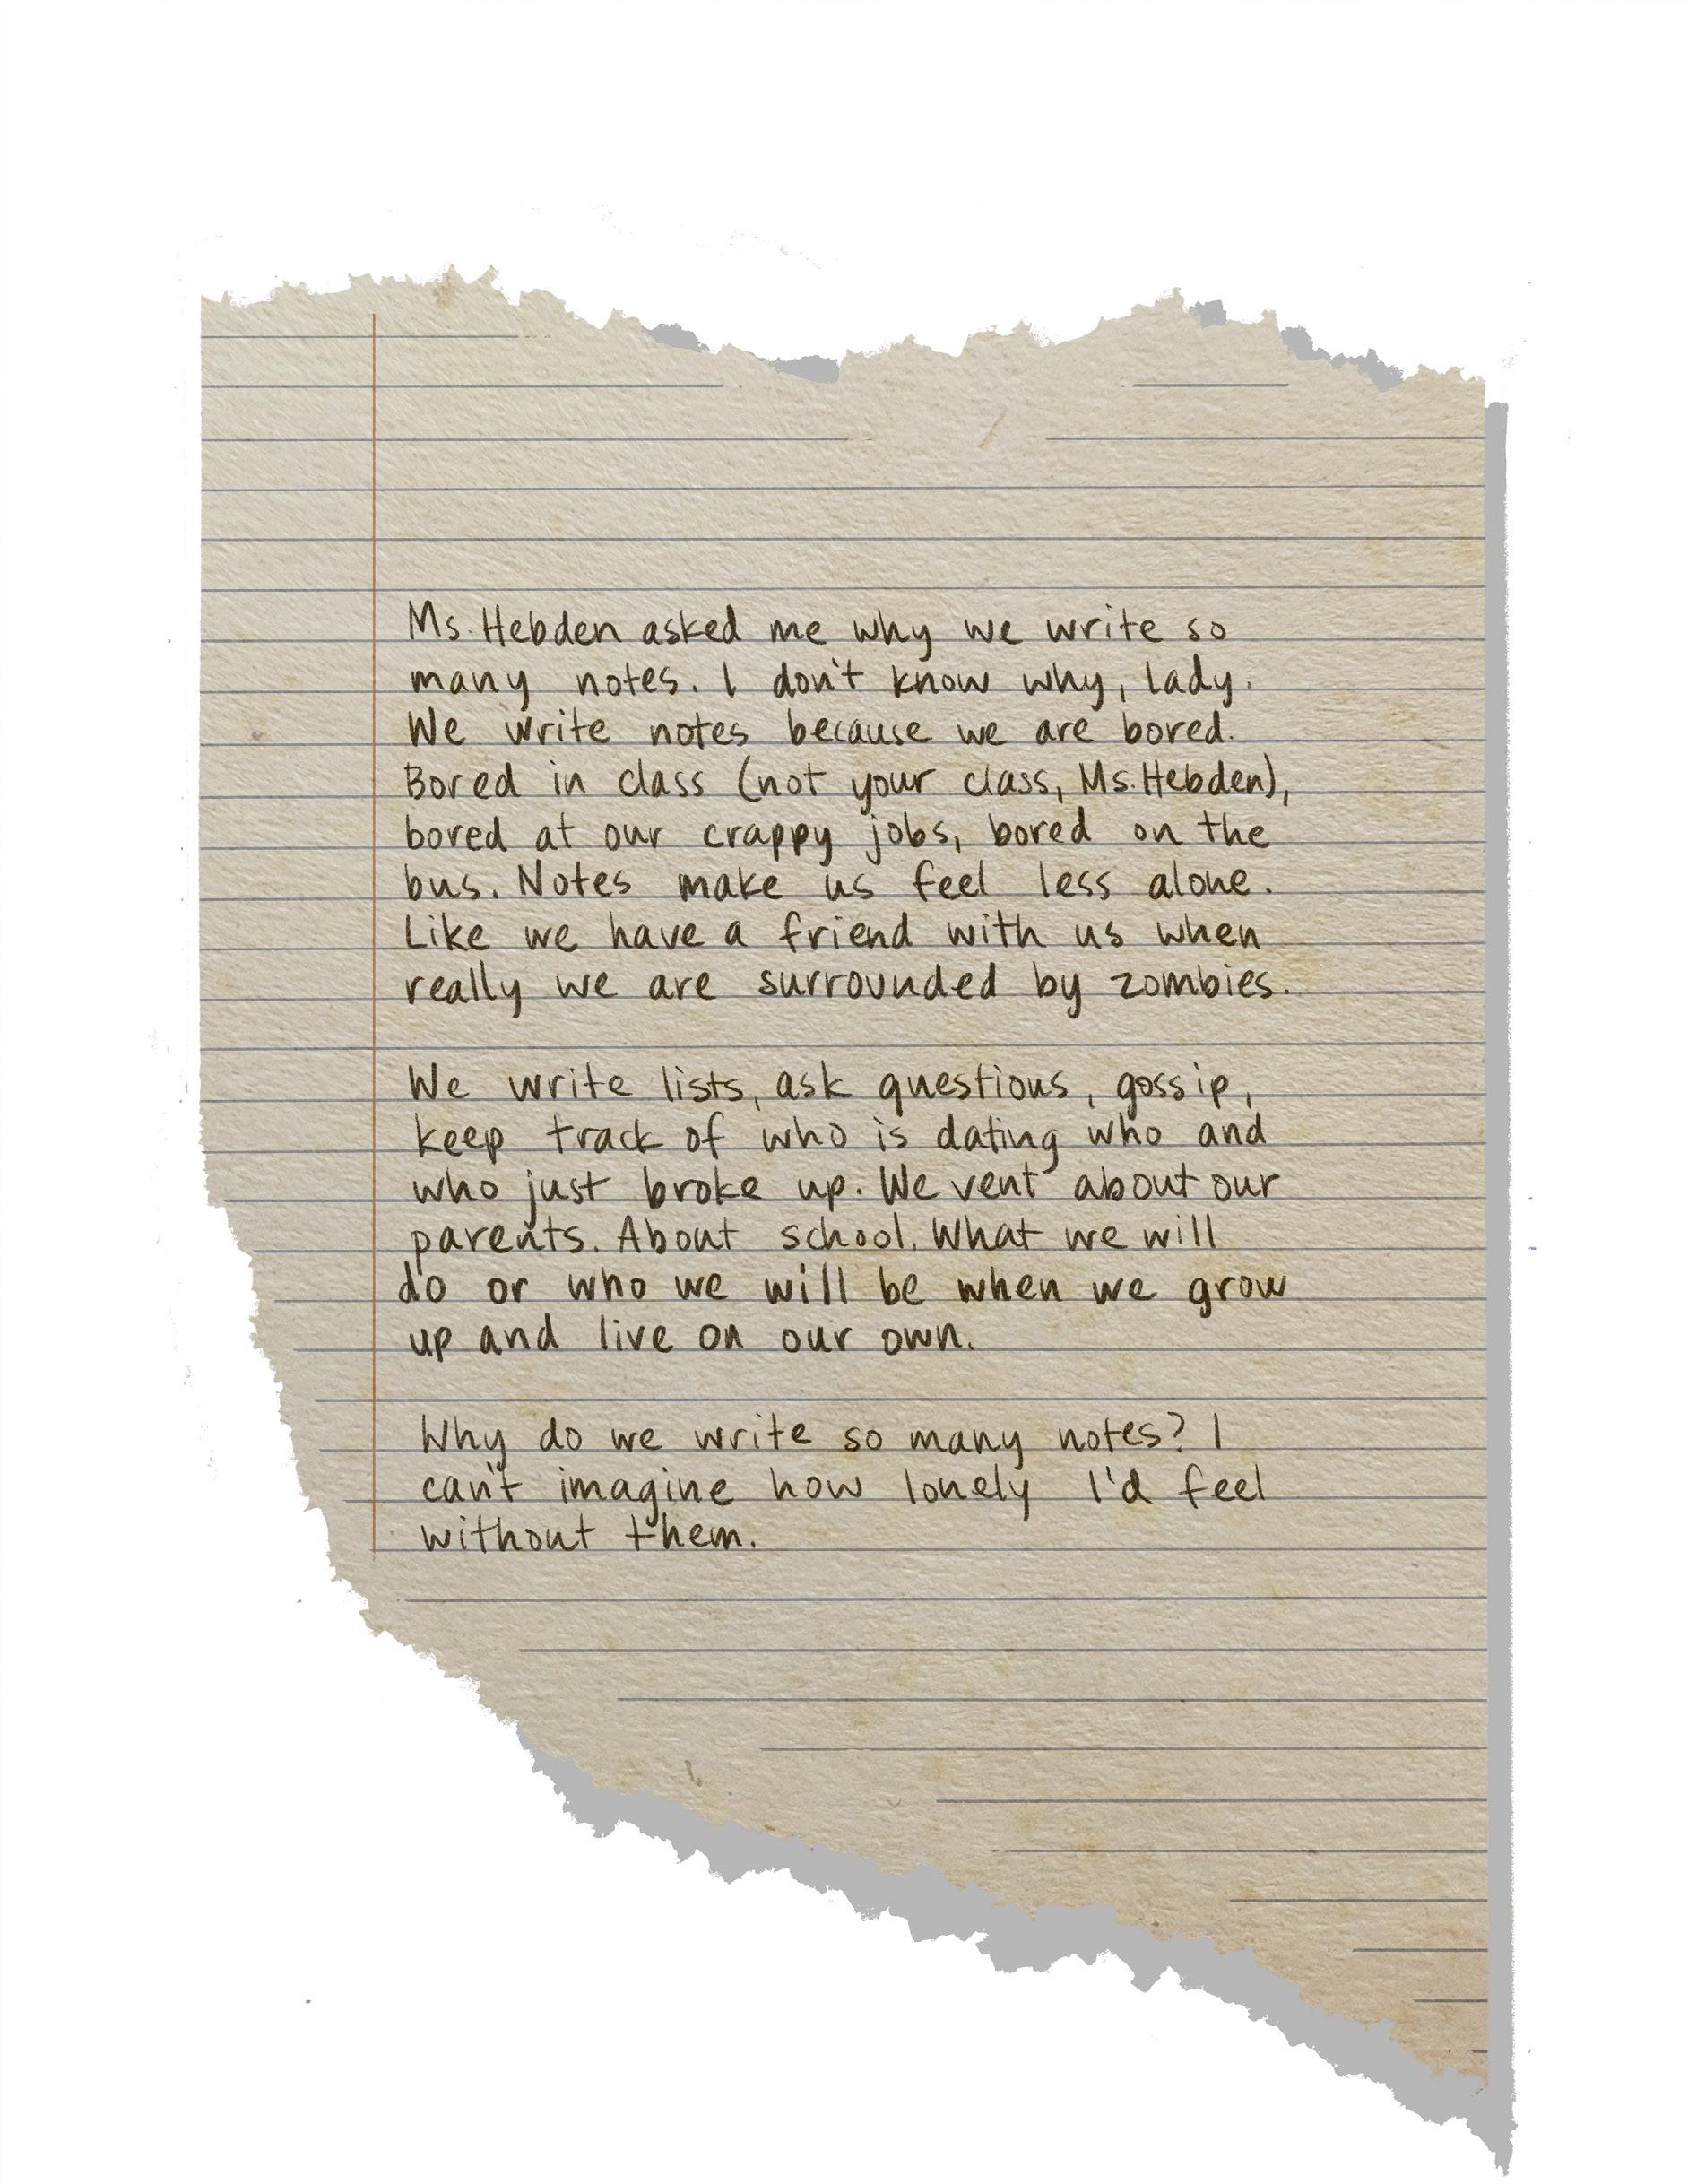 Ms. Hebden asked me why we write so
many notes. I don't know why, lady.
We write notes because we are bored.
Bored in class (not your class, Ms. Hebden),
bored at our crappy jobs, bored on the
bus. Notes make us feel less alone.
Like we have a friend with us when
really we are surrounded by zombies.
We write lists, ask questions, gossip,
keep track of who is dating who and
who just broke up. We vent about our
parents. About school. What we will
do or who we will be when we grow
up and live on our own.
Why do we write so many notes? I
can't imagine how lonely I'd feel
without them.